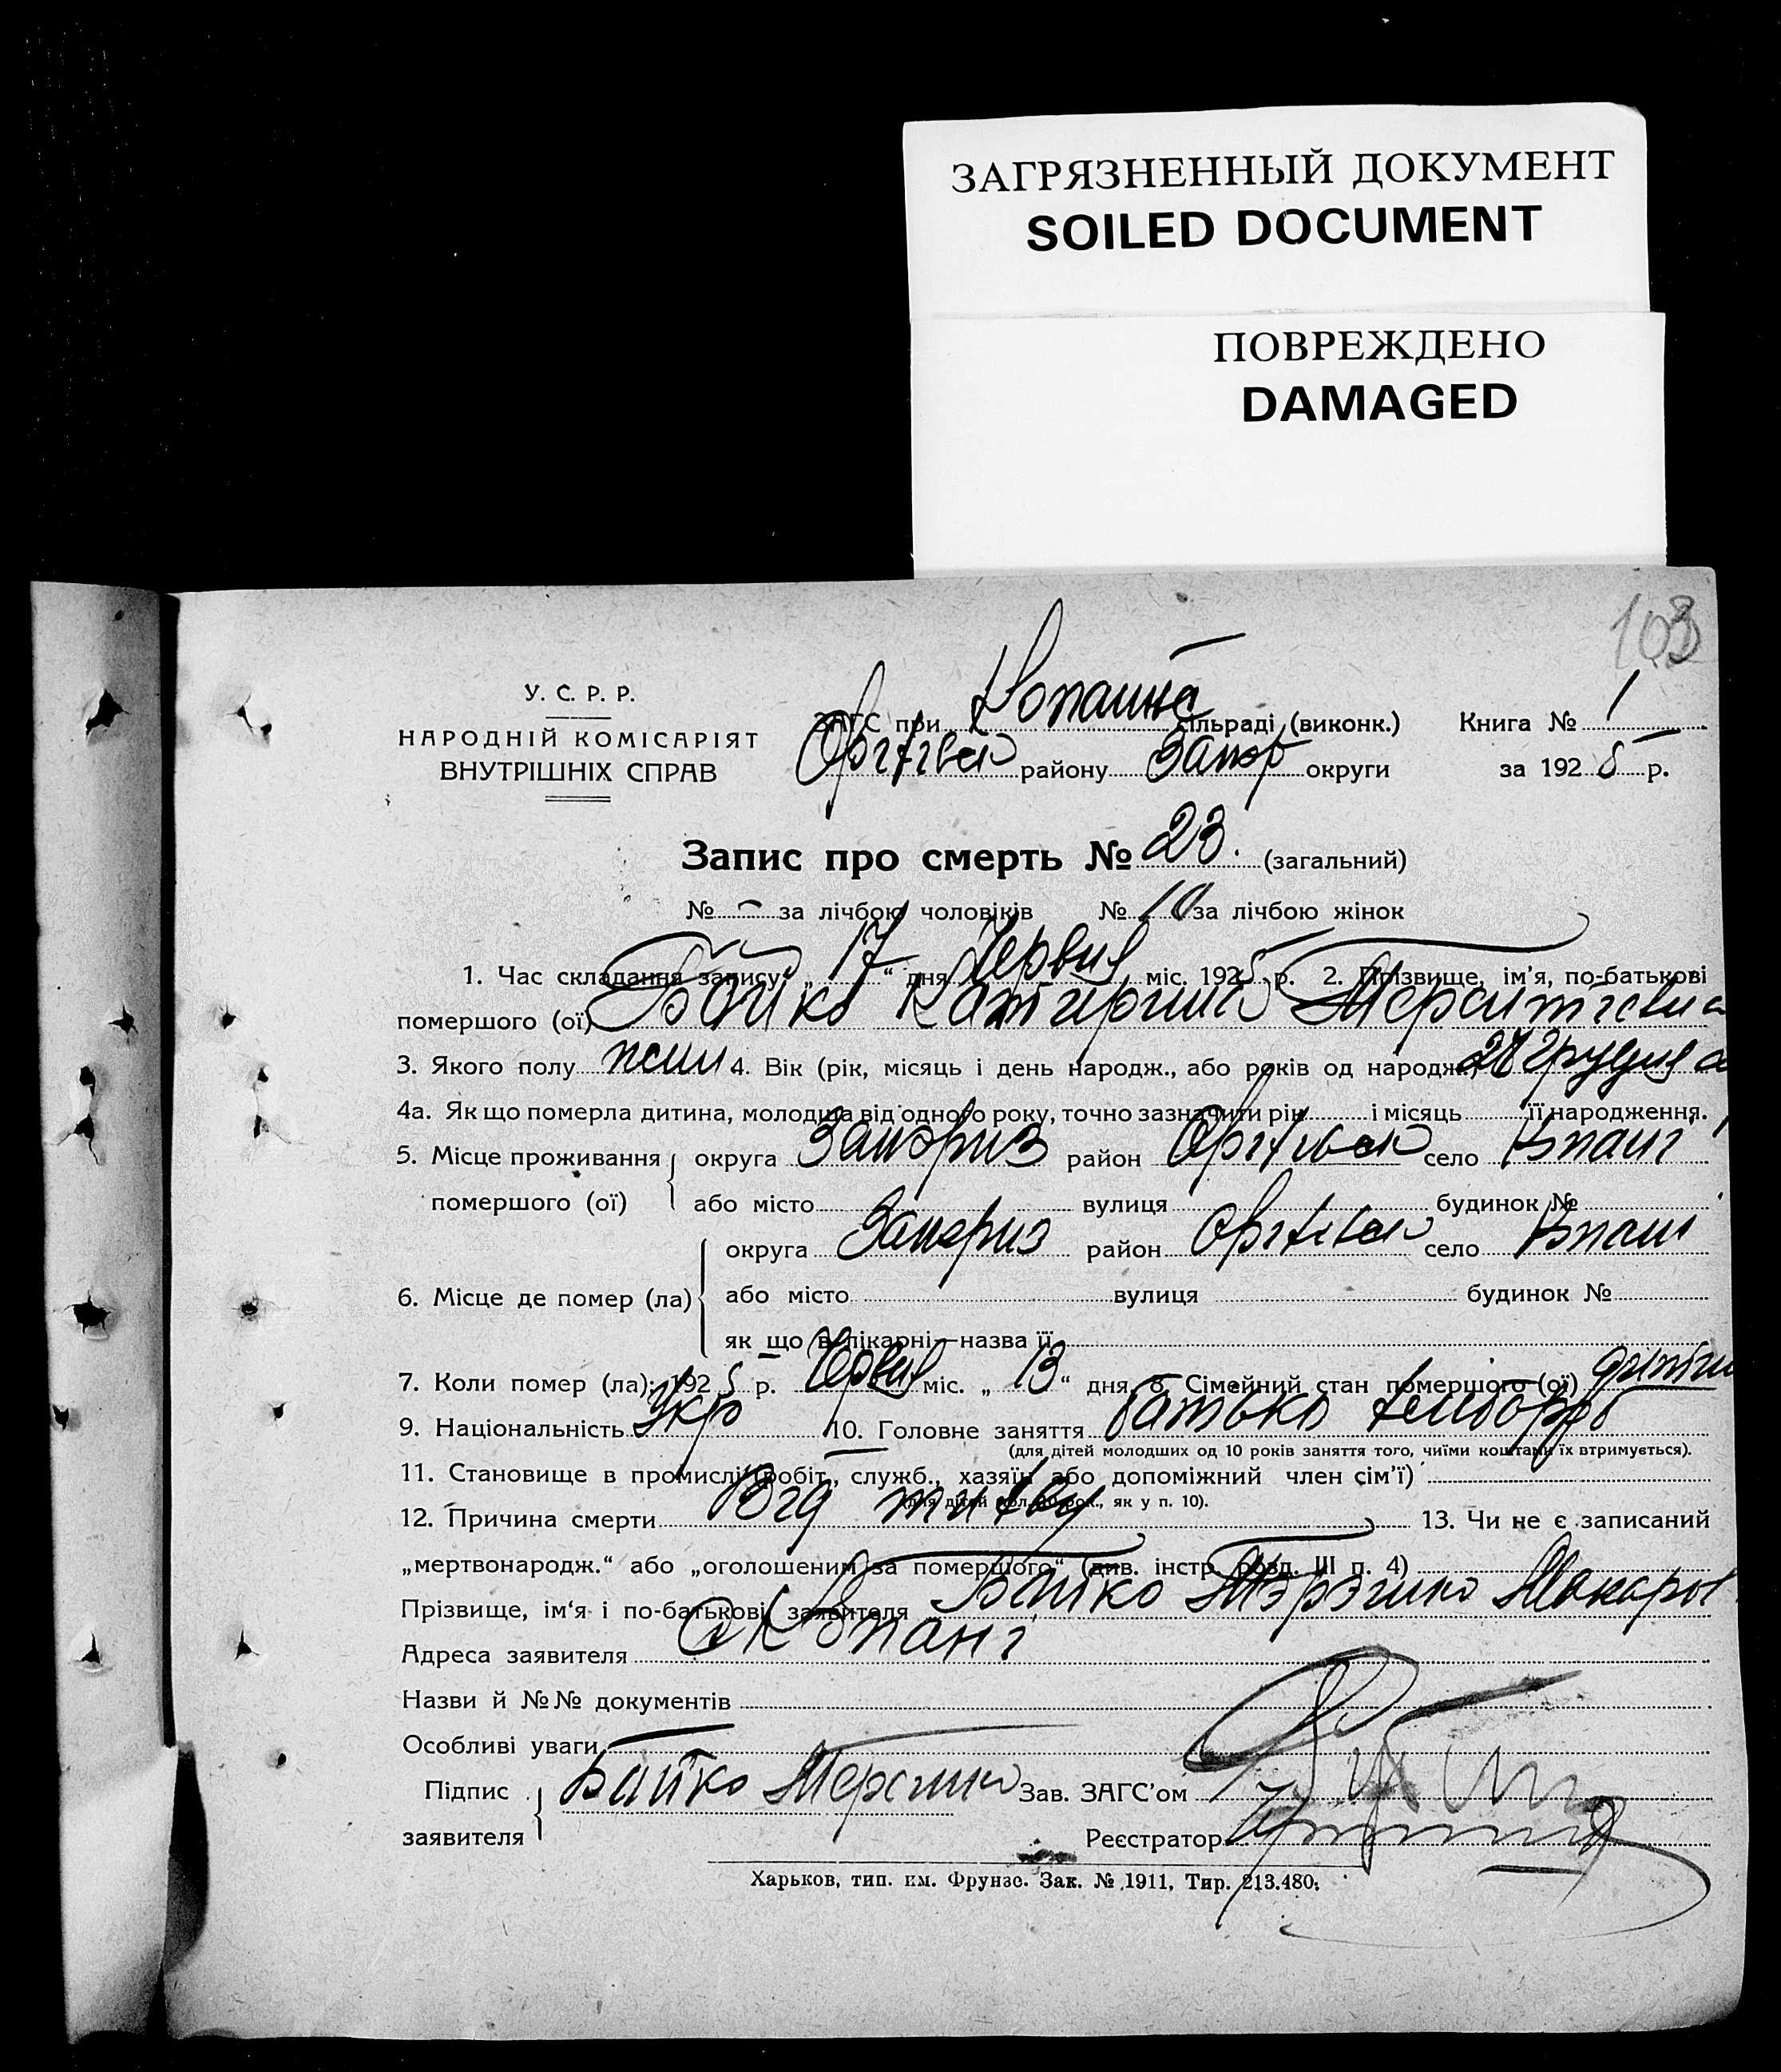 ЗАГРЯЗНЕННЫЙ ДОКУМЕНТ
SOILED DOCUMENT
ПОВРЕЖДЕНО
DAMAGED
103
У. С. Р. Р.
НАРОДНІЙ КОМІСАРІЯТ
ВНУТРІШНІХ СПРАВ
ЗАГС при сільраді (виконк.) Книга № 1
району Запор округи за 1925 р.
Запис про смерть № 23. (загальний)
№ - за лічбою чоловіків № 10 за лічбою жінок
1. Час складання запису „17“ дня Червня міс. 1925 р. 2. Прізвище, ім'я, по-батькові
помершого (ої) Бойко Катирина
3. Якого полу жин 4. Вік (рік, місяць і день народж., або років од народж.) Грудня
4а. Як що померла дитина, молодша від одного року, точно зазначити рік і місяць її народження.
5. Місце проживання округа Запориз район село Копані
помершого (ої) або місто вулиця будинок №
округа Запориз район село Копані
6. Місце де помер (ла) або місто вулиця будинок №
як що в лікарні—назва її
7. Коли помер (ла): 1925 р. Червня міс. „13“ дня. 8. Сімейний стан помершого (ої)
9. Національність Укр 10. Головне заняття батько хлібороб
(для дітей молодших од 10 років заняття того, чиїми коштами їх втримується).
11. Становище в промислі (робіт., служб., хазяїн або допоміжний член сім'ї)
(для дітей мол. 10 рок., як у п. 10).
12. Причина смерти Від 13. Чи не є записаний
„мертвонародж.“ або „оголошеним за помершого“ (див. інстр. розд. III п. 4)
Прізвище, ім'я і по-батькові заявителя Бойко Макаров
Адреса заявителя С Копані
Назви й №№ документів
Особливі уваги
Підпис Бойко Зав. ЗАГС'ом
заявителя Реєстратор
Харьков, тип. им. Фрунзе. Зак. № 1911, Тир. 213.480.